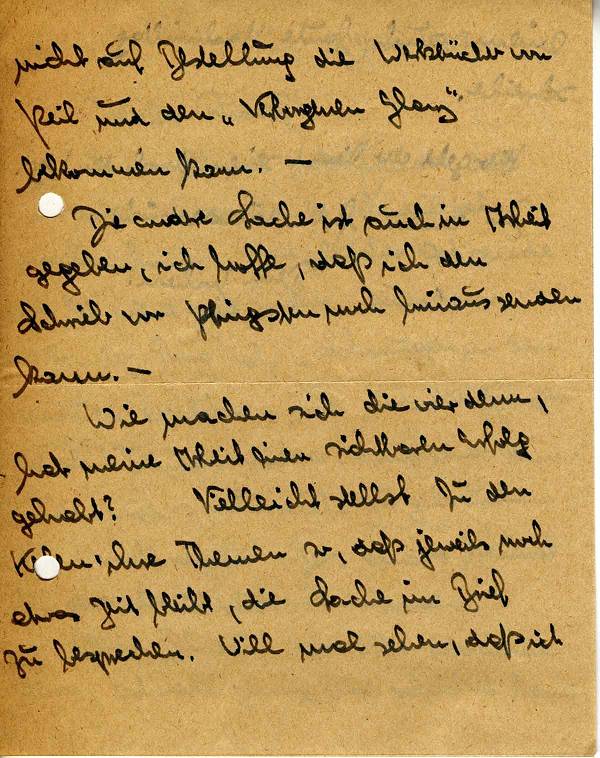 nicht auf Bestellung die Werkbücher von
Keil und den „Verborgnen Glanz“
bekommen kann. —
Die andre Sache ist auch in Arbeit
gegeben, ich hoffe, daß ich den
Schrieb vor Pfingsten noch hinaussenden
kann. —
Wie machen sich die vier denn,
hat meine Arbeit einen sichtbaren Erfolg
gehabt? Vielleicht stellst Du den
ihre Themen so, daß jeweils noch
etwas Zeit bleibt, die Sache im Brief
zu besprechen. Will mal sehen, daß ich